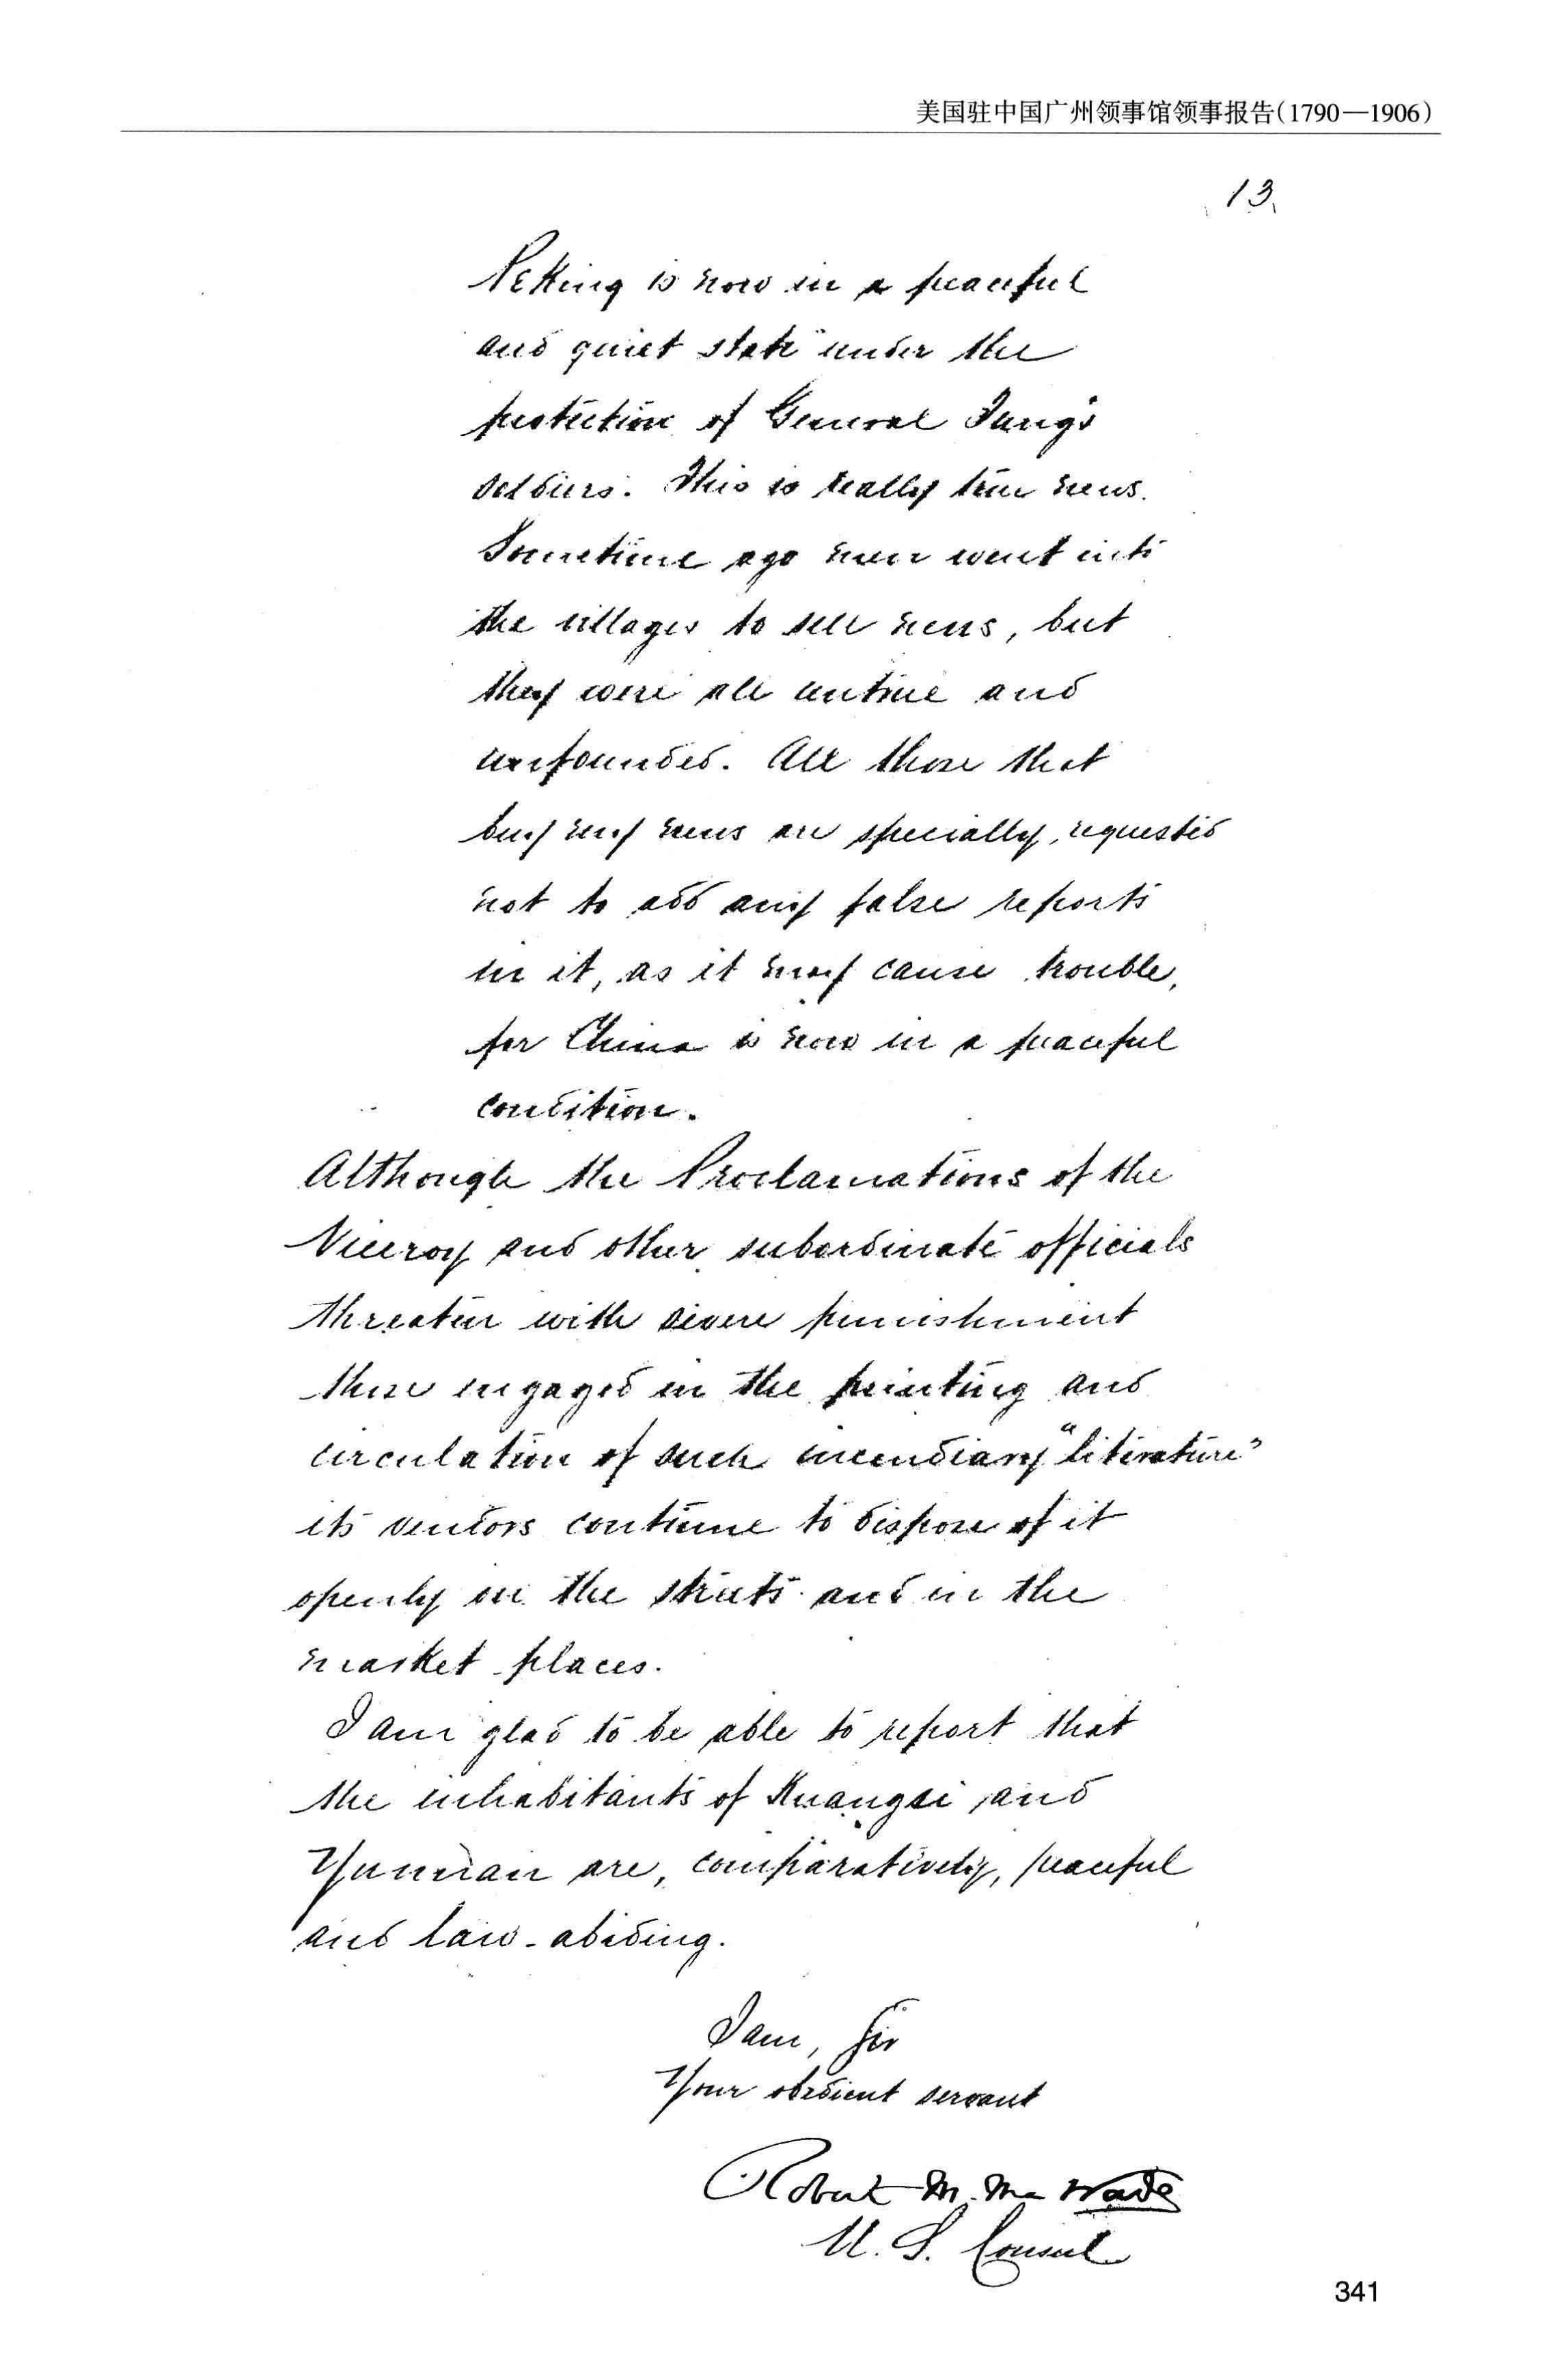 美国驻中国广州领事馆领事报告(1790—1906)
13.
Peking is now in a peaceful
and quiet state under the
protection of General Tung's
soldiers. This is really true news.
Sometime ago men went into
the villages to sell news, but
they were all untrue and
unfounded. All those that
buy my news are specially requested
not to add any false reports
in it, as it may cause trouble,
for China is now in a peaceful
condition.
Although the Proclamations of the
Viceroy and other subordinate officials
threaten with severe punishment
those engaged in the printing and
circulation of such incendiary "literature"
its vendors continue to dispose of it
openly in the streets and in the
market places.
I am glad to be able to report that
the inhabitants of Kuangsi and
Yunnan are, comparatively, peaceful
and law-abiding.
I am, Sir
Your obedient servant
Robert M. McWade
U. S. Consul
341